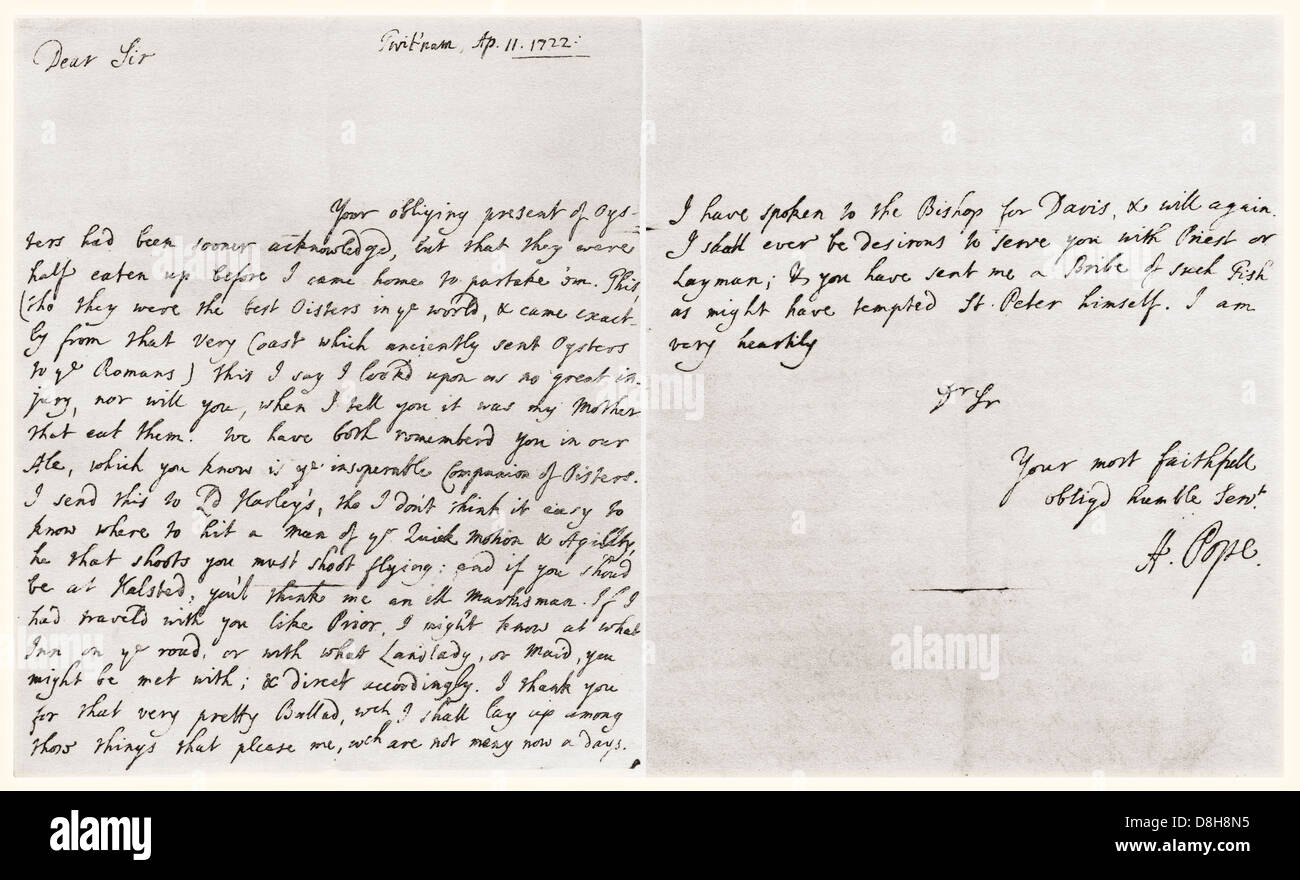 Twit'nam, Ap. 11. 1722:
Dear Sir
Your obliging present of Oys-
ters had been sooner acknowledgd, but that they were
half eaten up before I came home to partake 'em. This,
(tho they were the best Oisters in ye world, & came exact-
ly from that very Coast which anciently sent Oysters
to ye Romans) this I say I look'd upon as no great in-
jury, nor will you, when I tell you it was my Mother
that eat them. We have both rememberd you in our
Ale, which you know is ye inseperable Companion of Oisters.
I send this to Ld Harley's, tho I don't think it easy to
know where to hit a man of yr Quick Motion & Agility,
he that shoots you must shoot flying: and if you shoud
be at Halsted, you'l think me an ill Marksman. If I
had travel'd with you like Prior, I might know at what
Inn on ye road, or with what Landlady, or Maid, you
might be met with; & direct accordingly. I thank you
for that very pretty Ballad, wch I shall lay up among
those things that please me, wch are not many now a days.
I have spoken to the Bishop for Davis, & will again.
I shall ever be desirous to serve you with Priest or
Layman; & you have sent me a Bribe of such Fish
as might have tempted St. Peter himself. I am
very heartily
Dr Sr
Your most faithfull
obligd humble Servt.
A. Pope.
alamy
alamy
www.alamy.com
D8H8N5